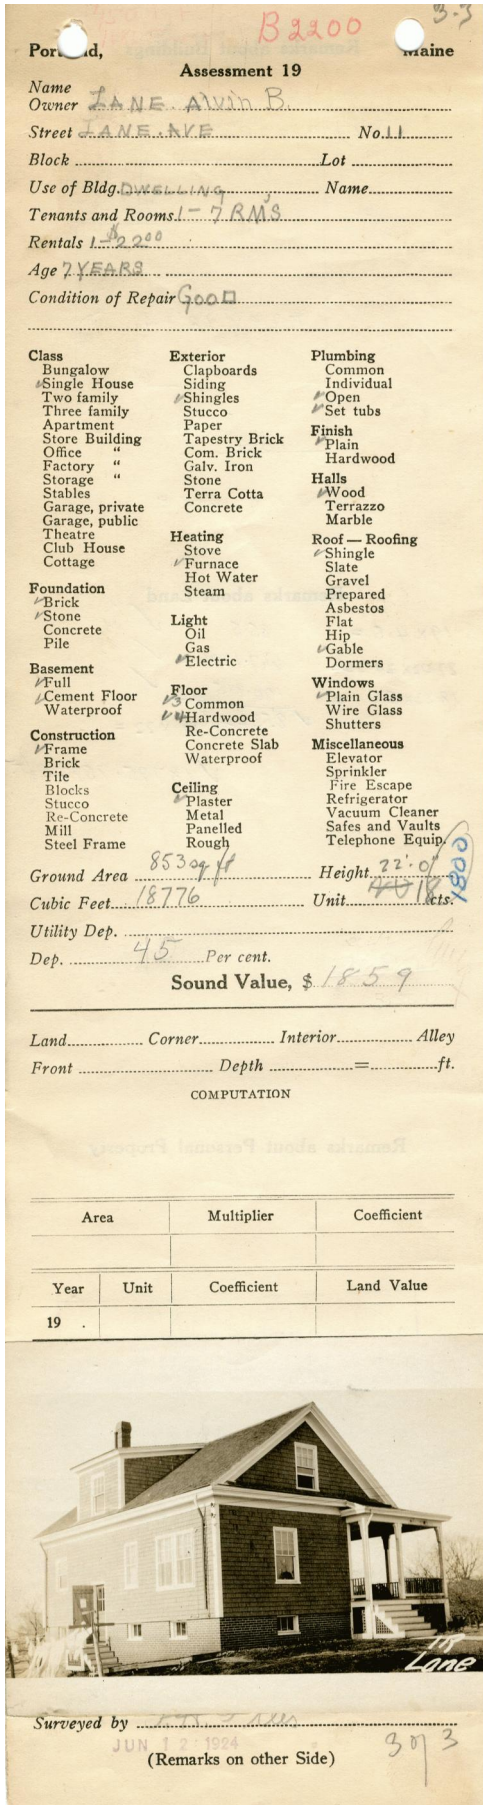 B2200
3-3
Portland, Maine
Assessment 19
Name
Owner LANE. Alvin B.
Street LANE. AVE No. 11
Block Lot
Use of Bldg. DWELLING Name
Tenants and Rooms 1 - 7 RMS
Rentals 1 - $22.00
Age 7 YEARS
Condition of Repair GOOD
Class
Bungalow
✓Single House
Two family
Three family
Apartment
Store Building
Office "
Factory "
Storage "
Stables
Garage, private
Garage, public
Theatre
Club House
Cottage
Foundation
✓Brick
✓Stone
Concrete
Pile
Basement
✓Full
✓Cement Floor
Waterproof
Construction
✓Frame
Brick
Tile
Blocks
Stucco
Re-Concrete
Mill
Steel Frame
Exterior
Clapboards
Siding
✓Shingles
Stucco
Paper
Tapestry Brick
Com. Brick
Galv. Iron
Stone
Terra Cotta
Concrete
Heating
Stove
✓Furnace
Hot Water
Steam
Light
Oil
Gas
✓Electric
Floor
✓3 Common
✓4 Hardwood
Re-Concrete
Concrete Slab
Waterproof
Ceiling
✓Plaster
Metal
Panelled
Rough
Plumbing
Common
Individual
✓Open
✓Set tubs
Finish
✓Plain
Hardwood
Halls
✓Wood
Terrazzo
Marble
Roof — Roofing
✓Shingle
Slate
Gravel
Prepared
Asbestos
Flat
Hip
✓Gable
Dormers
Windows
✓Plain Glass
Wire Glass
Shutters
Miscellaneous
Elevator
Sprinkler
Fire Escape
Refrigerator
Vacuum Cleaner
Safes and Vaults
Telephone Equip.
Ground Area 853 sq ft Height 22'-0"
Cubic Feet 18776 Unit 18 cts.
1800
Utility Dep.
Dep. 45 Per cent.
Sound Value, $ 1859
Land Corner Interior Alley
Front Depth = ft.
COMPUTATION
Area Multiplier Coefficient
Year Unit Coefficient Land Value
19 .
11R
Lane
Surveyed by
JUN 12 1924
(Remarks on other Side)
3 of 3